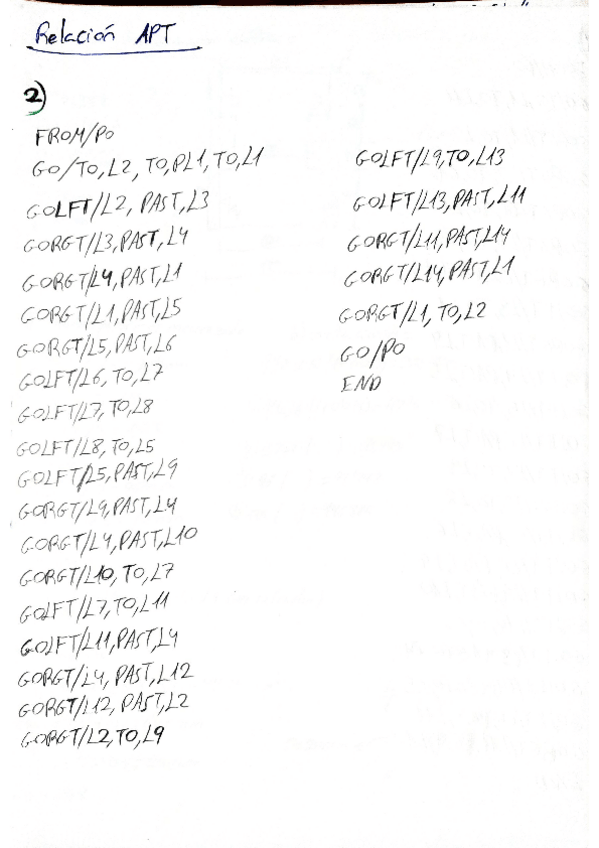 Relación APT
2)
FROM/PO
GO/TO, L2, TO, PL1, TO, L1
GOLFT/L2, PAST, L3
GORGT/L3, PAST, L4
GORGT/L4, PAST, L1
GORGT/L1, PAST, L5
GORGT/L5, PAST, L6
GOLFT/L6, TO, L7
GOLFT/L7, TO, L8
GOLFT/L8, TO, L5
GOLFT/L5, PAST, L9
GORGT/L9, PAST, L4
GORGT/L4, PAST, L10
GORGT/L10, TO, L7
GOLFT/L7, TO, L11
GOLFT/L11, PAST, L4
GORGT/L4, PAST, L12
GORGT/L12, PAST, L2
GORGT/L2, TO, L9
GOLFT/L9, TO, L13
GOLFT/L13, PAST, L11
GORGT/L11, PAST, L14
GORGT/L14, PAST, L1
GORGT/L1, TO, L2
GO/PO
END